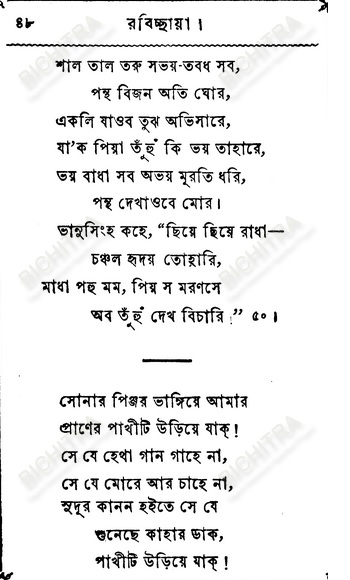 ৪৮
রবিচ্ছায়া।
শাল তাল তরু সভয়-তবধ সব,
পন্থ বিজন অতি ঘোর,
একলি যাওব তুঝ অভিসারে,
যা'ক পিয়া তুঁহুঁ কি ভয় তাহারে,
ভয় বাধা সব অভয় মুরতি ধরি,
পন্থ দেখাওবে মোর।
ভানুসিংহ কহে, “ছিয়ে ছিয়ে রাধা—
চঞ্চল হৃদয় তোহারি,
মাধা পহু মম, পিয় স মরণসে
অব তুঁহুঁ দেখ বিচারি।” ৫০।
সোনার পিঞ্জর ভাঙ্গিয়ে আমার
প্রাণের পাখীটি উড়িয়ে যাক্!
সে যে হেথা গান গাহে না,
সে যে মোরে আর চাহে না,
সুদূর কানন হইতে সে যে
শুনেছে কাহার ডাক,
পাখীটি উড়িয়ে যাক্!
BICHITRA